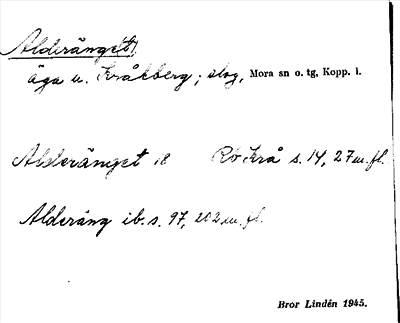 Alderänget
äga u. Kråkberg; slog, Mora sn o. tg, Kopp. l.
Alderänget 18 Rö Krå s. 14, 27 m.fl.
Alderäng ib. s. 97, 202 m.fl.
Bror Lindén 1945.